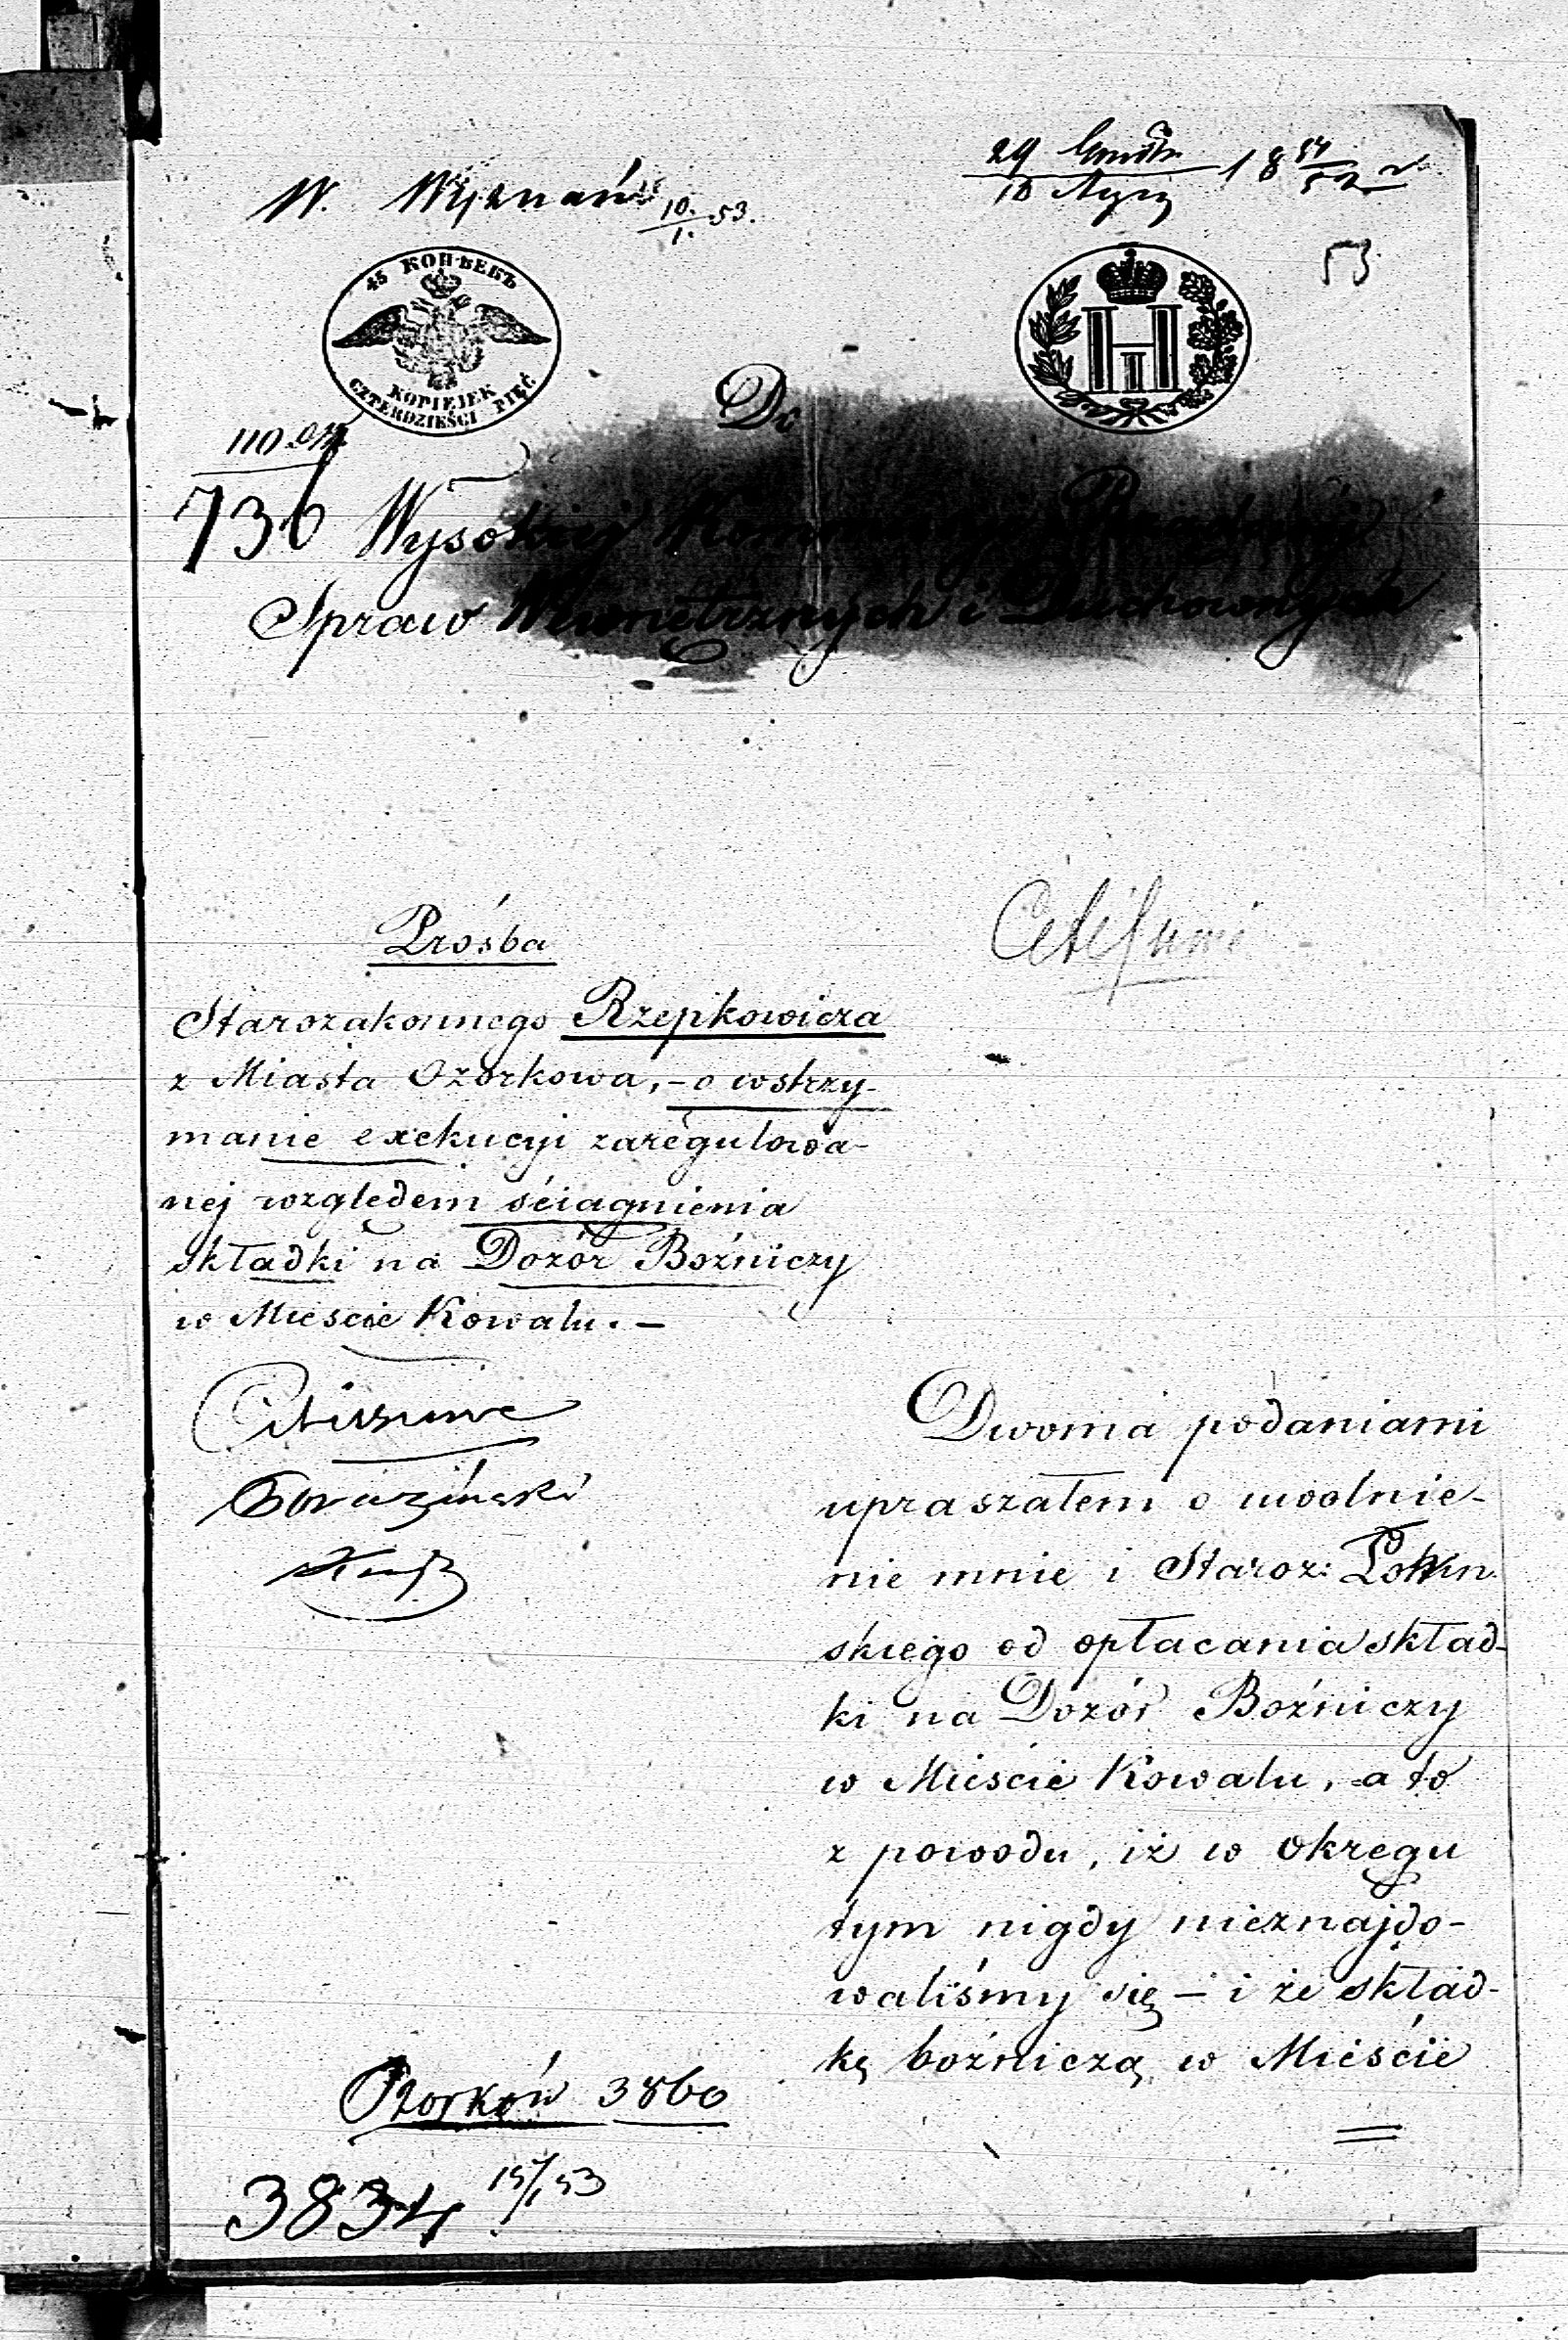 W. Wyznań 10/1. 53.
29 Grudn 18
10
53
45 КОПѢЕКЪ
KOPIEJEK
CZTERDZIEŚCI PIĘĆ
H I
Do
110
736
Wysokiej Kommissyi Rządowej
Spraw Wewnętrznych i Duchownych
Prośba
Starozakonnego Rzepkowicza
z Miasta Ozorkowa, - o wstrzy-
manie exekucyi zaregulowa-
nej względem ściągnienia
składki na Dozór Boźniczy
w Mieście Kowalu. -
Dwoma podaniami
upraszałem o uwolnie-
nie mnie i Staroz:
skiego od opłacania skład-
ki na Dozór Boźniczy
w Mieście Kowalu, a to
z powodu, iż w okręgu
tym nigdy nieznajdo-
waliśmy się - i że skład-
kę boźniczą w Mieście
Ozorków 3860
3834 15/1 53